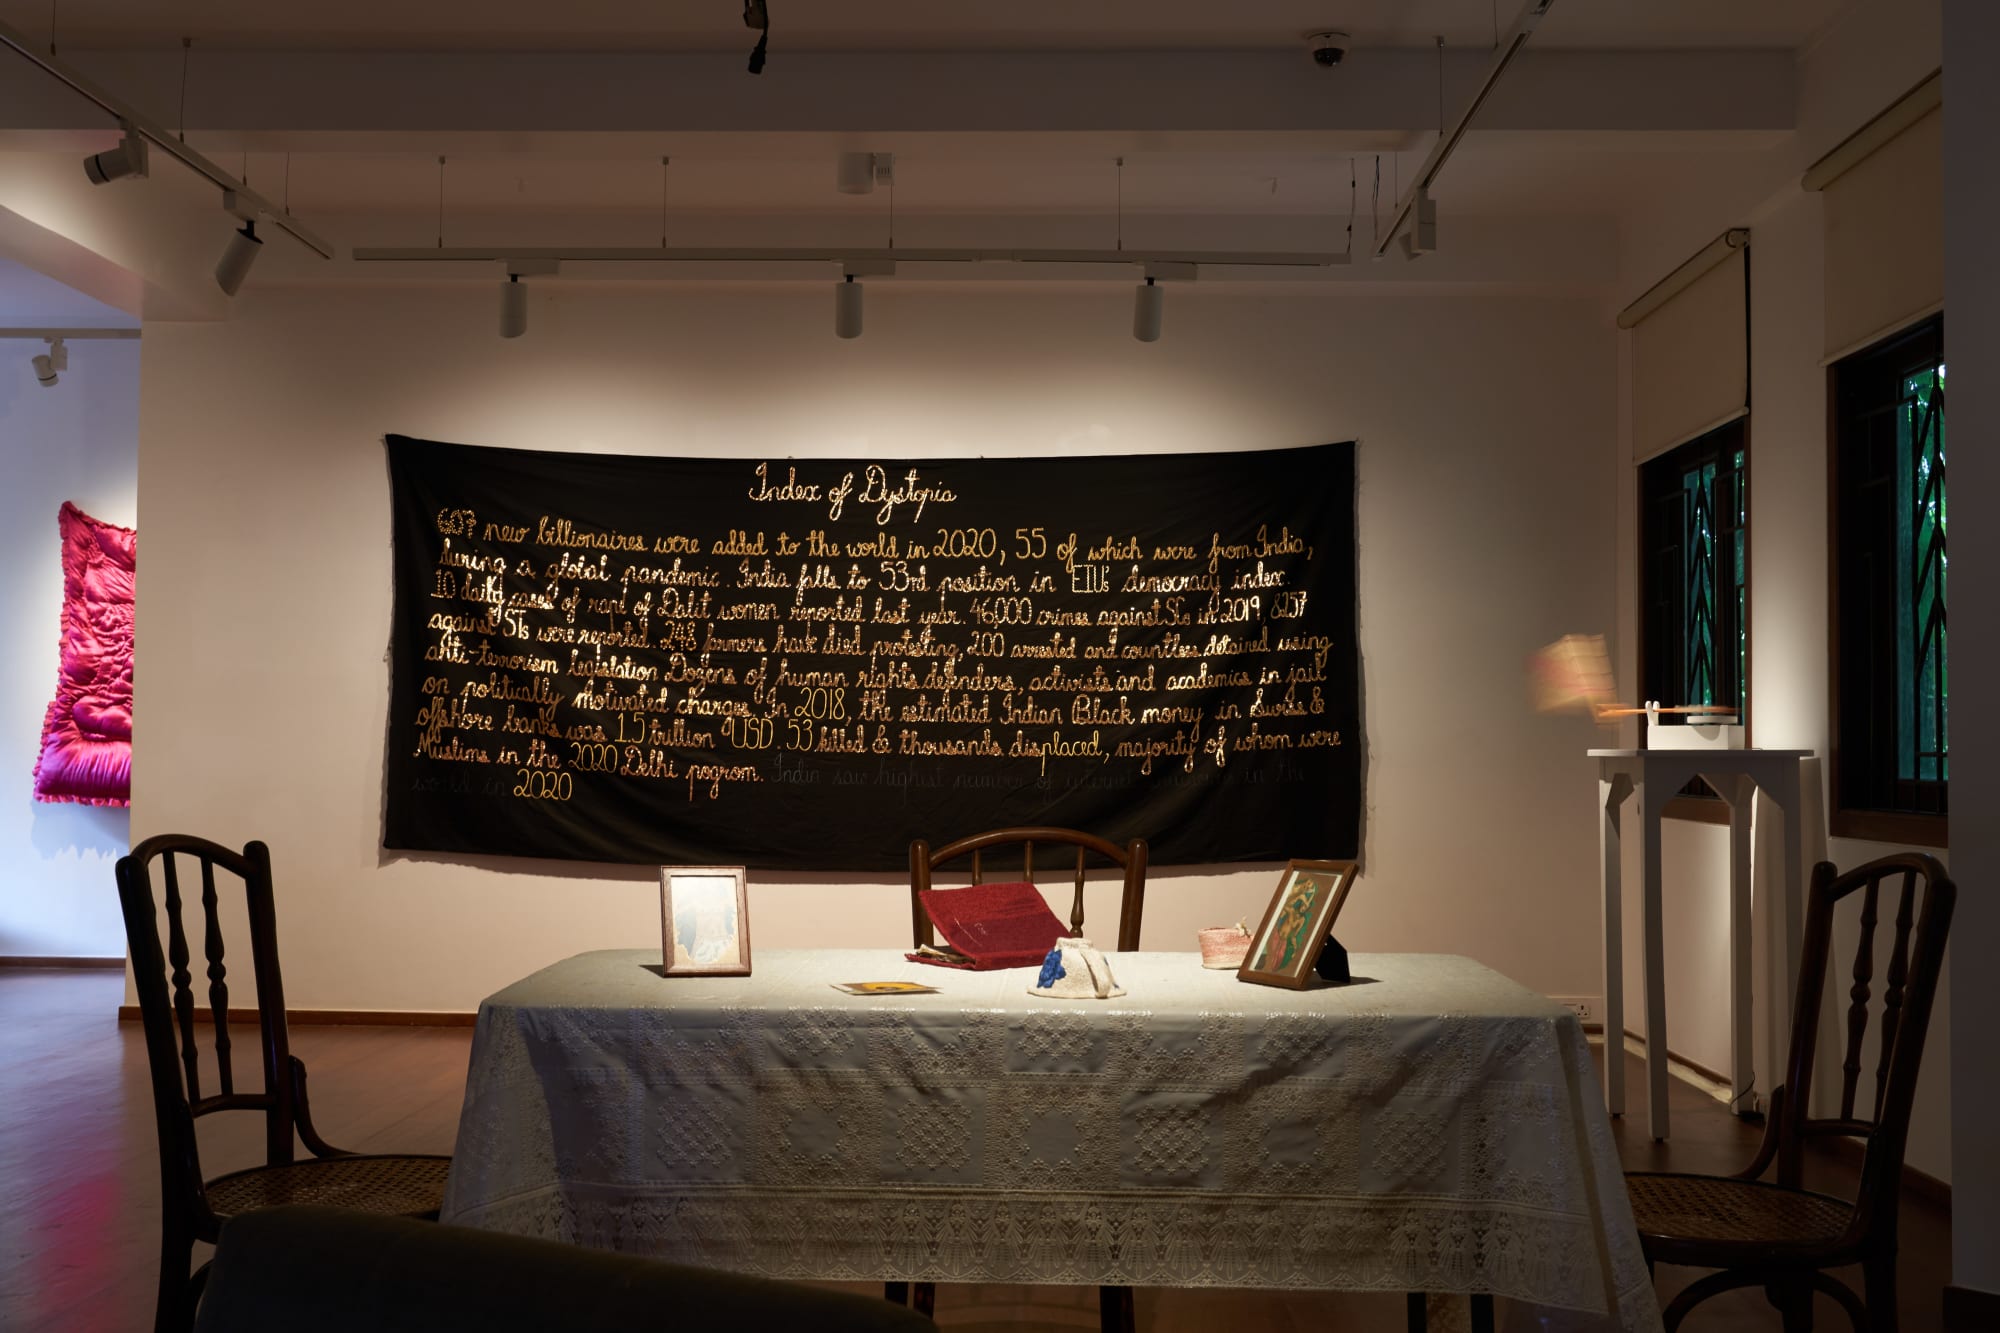 Index of Dystopia
607 new billionaires were added to the world in 2020, 55 of which were from India,
during a global pandemic. India falls to 53rd position in EIU's democracy index.
10 daily cases of rape of Dalit women reported last year. 46,000 crimes against SCs in 2019, 8257
against STs were reported. 248 farmers have died protesting, 200 arrested and countless detained using
anti-terrorism legislation Dozens of human rights defenders, activists and academics in jail
on politically motivated charges. In 2018, the estimated Indian Black money in Swiss &
offshore banks was 1.5 trillion USD. 53 killed & thousands displaced, majority of whom were
Muslims in the 2020 Delhi pogrom. India saw highest number of internet in the
world in 2020